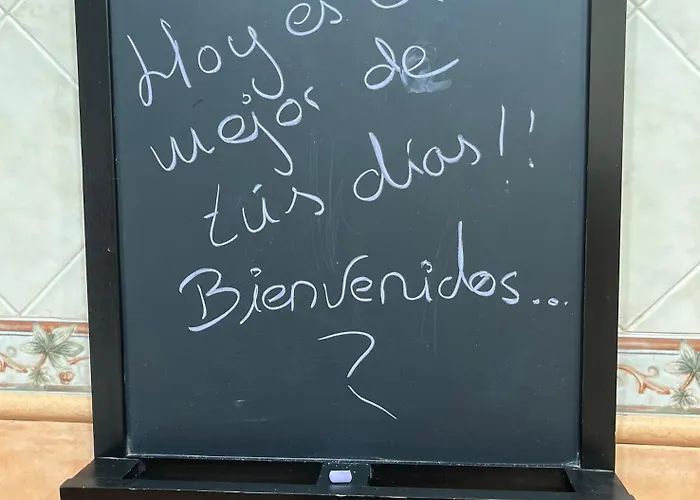 Hoy es
mejor de
tús días!!
Bienvenidos...
?